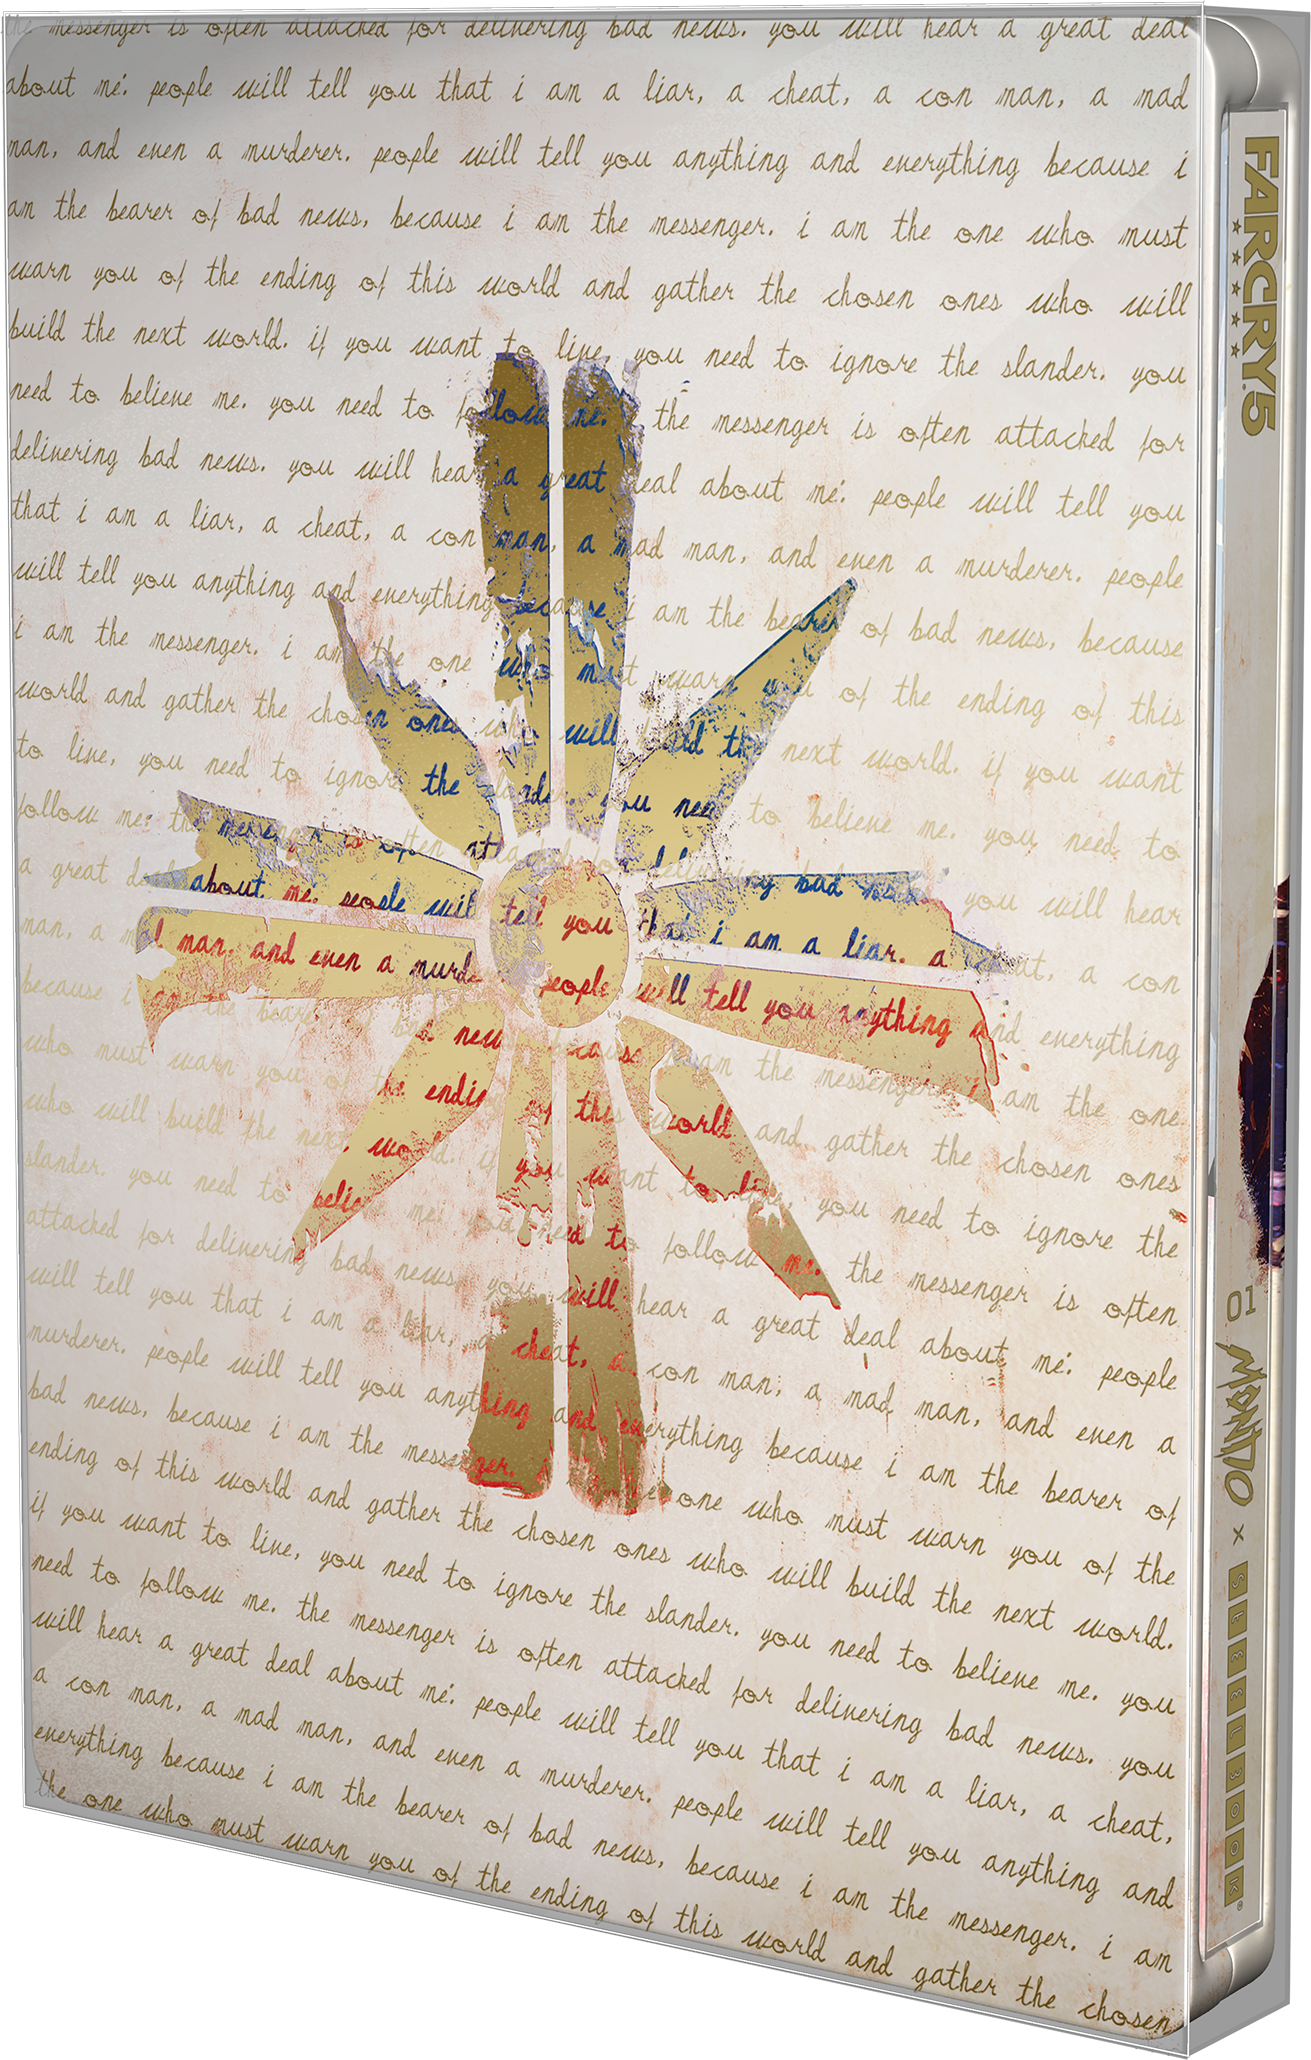 the messenger is often attacked for delivering bad news. you will hear a great deal
about me: people will tell you that i am a liar, a cheat, a con man, a mad
man, and even a murderer. people will tell you anything and everything because i
am the bearer of bad news, because i am the messenger. i am the one who must
warn you of the ending of this world and gather the chosen ones who will
build the next world. if you want to live, you need to ignore the slander. you
need to believe me. you need to follow me. the messenger is often attacked for
delivering bad news. you will hear a great deal about me: people will tell you
that i am a liar, a cheat, a con man, a mad man, and even a murderer. people
will tell you anything and everything because i am the bearer of bad news, because
i am the messenger. i am the one who must warn you of the ending of this
world and gather the chosen ones who will build the next world. if you want
to live, you need to ignore the slander. you need to believe me. you need to
follow me: the messenger is often attacked for delivering bad news. you will hear
a great deal about me: people will tell you that i am a liar, a cheat, a con
man, a mad man, and even a murderer. people will tell you anything and everything
because i am the bearer of bad news, because i am the messenger. i am the one
who must warn you of the ending of this world and gather the chosen ones
who will build the next world. if you want to live, you need to ignore the
slander. you need to believe me. you need to follow me. the messenger is often
attacked for delivering bad news. you will hear a great deal about me: people
will tell you that i am a liar, a cheat, a con man, a mad man, and even a
murderer. people will tell you anything and everything because i am the bearer of
bad news, because i am the messenger. one who must warn you of the
ending of this world and gather the chosen ones who will build the next world.
if you want to live, you need to ignore the slander. you need to believe me. you
need to follow me. the messenger is often attacked for delivering bad news. you
will hear a great deal about me: people will tell you that i am a liar, a cheat,
a con man, a mad man, and even a murderer. people will tell you anything and
everything because i am the bearer of bad news, because i am the messenger. i am
the one who must warn you of the ending of this world and gather the chosen
FARCRY.5
01
MONDO x STEELBOOK®